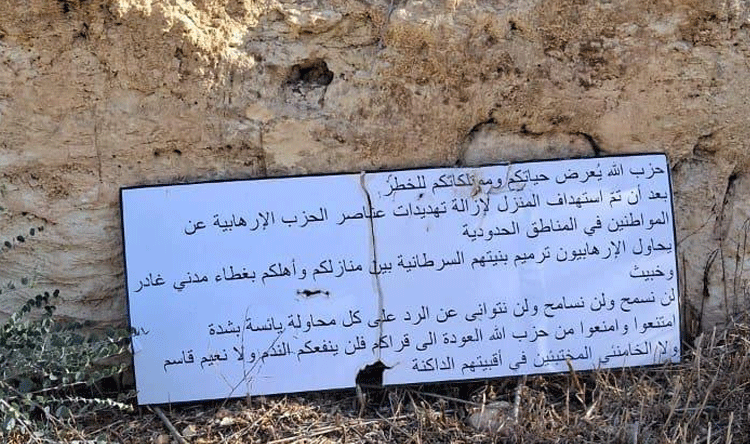 حزب الله يُعرض حياتكم وممتلكاتكم للخطر
بعد أن تم استهداف المنزل لإزالة تهديدات عناصر الحزب الإرهابية عن
المواطنين في المناطق الحدودية
يحاول الإرهابيون ترميم بنيتهم السرطانية بين منازلكم وأهلكم بغطاء مدني غادر
وخبيث
لن نسمح ولن نسامح ولن نتوانى عن الرد على كل محاولة يائسة بشدة
امتنعوا وامنعوا من حزب الله العودة الى قراكم فلن ينفعكم الندم ولا نعيم قاسم
ولا الخامنئي المختبئين في أقبيتهم الداكنة